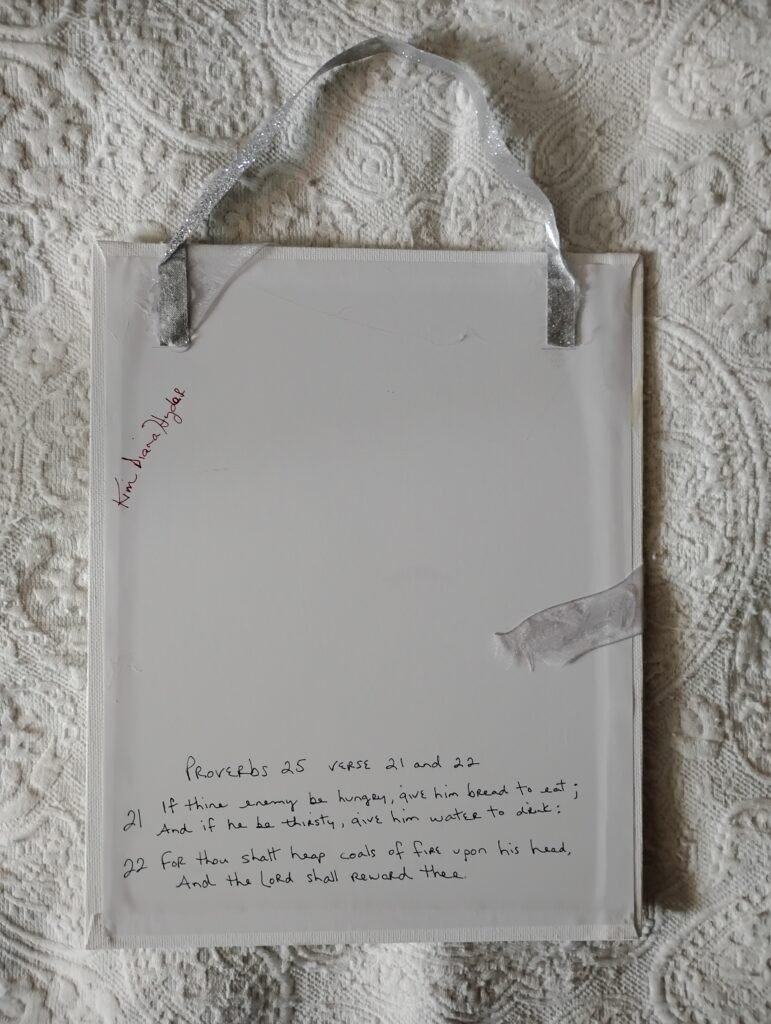 Kim Diana Hydar
Proverbs 25 verse 21 and 22
21 If thine enemy be hungry, give him bread to eat;
And if he be thirsty, give him water to drink:
22 For thou shalt heap coals of fire upon his head,
And the Lord shall reward thee.